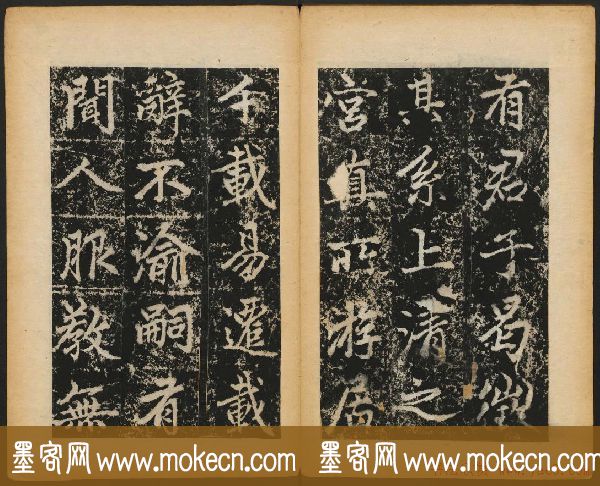 有君子曷徵
其系上清之
宫真所游居
千載易遷載
辭不渝嗣者
聞人服教無
墨客网 www.mokecn.com 墨客网 www.mokecn.com